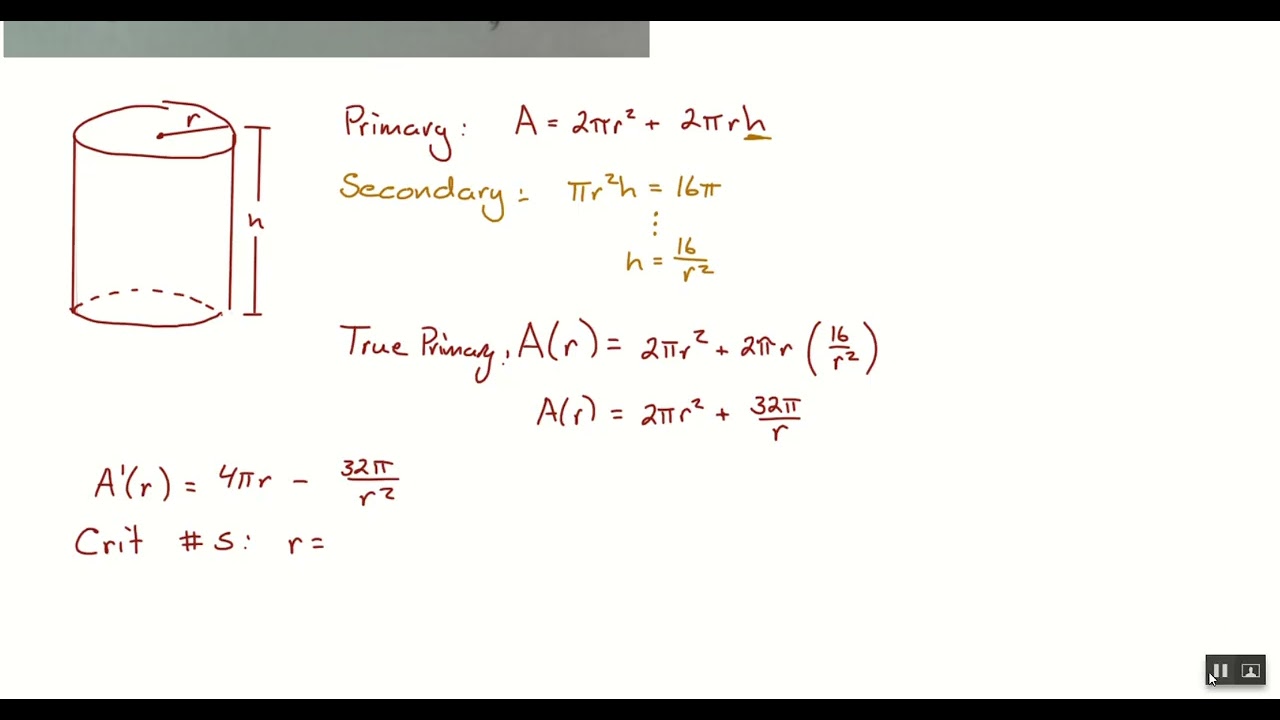 r
h
Primary: A = 2πr² + 2πrh
Secondary: πr²h = 16π
⋮
h = 16/r²
True Primary: A(r) = 2πr² + 2πr (16/r²)
A(r) = 2πr² + 32π/r
A'(r) = 4πr - 32π/r²
Crit #s: r =